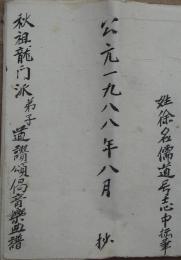 姓徐名儒道号志中抹筆
公元一九八八年八月 抄
秋祖龍门派弟子道讚頌偈音樂典譜